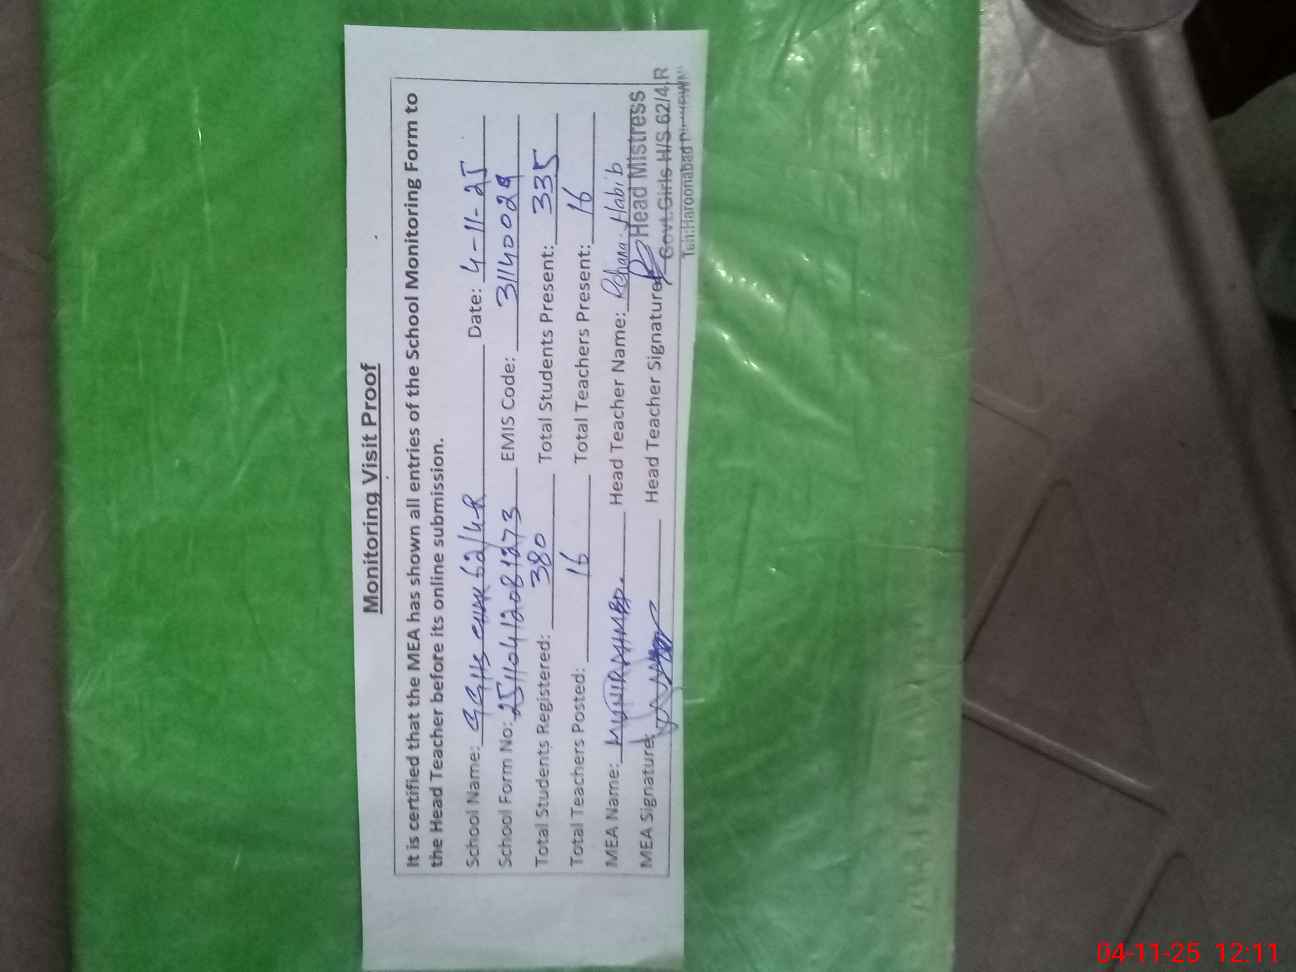 Monitoring Visit Proof
It is certified that the MEA has shown all entries of the School Monitoring Form to
the Head Teacher before its online submission.
School Name: GGHS CHAK 62/4-R Date: 4-11-25
School Form No: EMIS Code: 31140029
Total Students Registered: 380 Total Students Present: 335
Total Teachers Posted: 16 Total Teachers Present: 16
MEA Name: Head Teacher Name: Rehana Habib
MEA Signature: Head Teacher Signature
Head Mistress
Govt.Girls H/S 62/4.R
Teh:Haroonabad
04-11-25 12:11